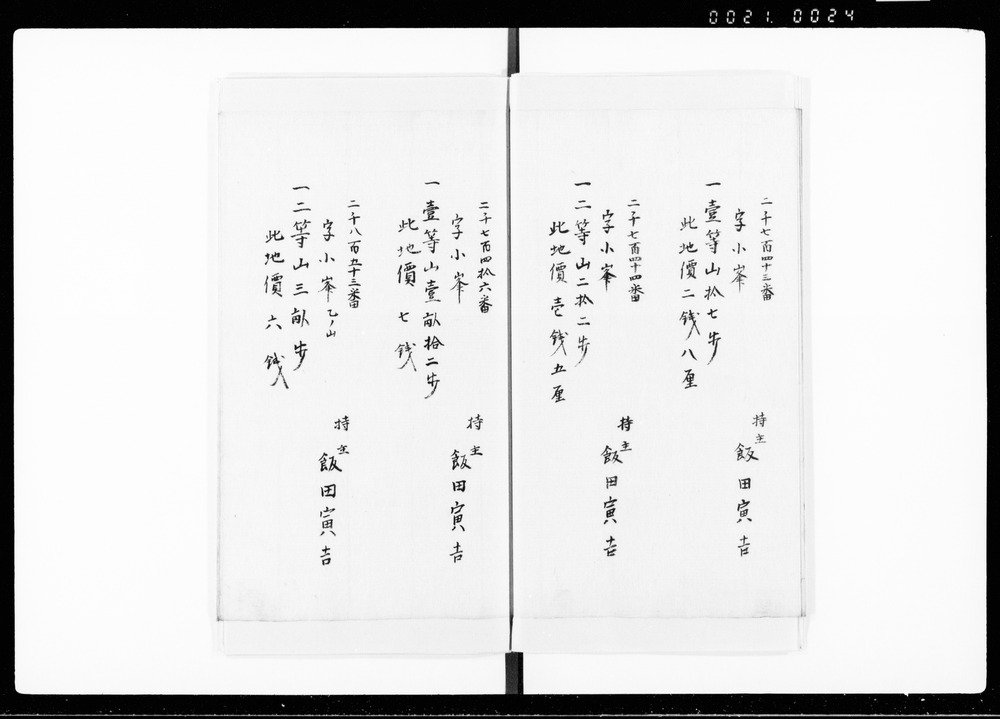 0021. 0024
二千七百四十三番
字小峯
一壹等山拾七步
此地價二錢八厘
持主
飯田寅吉
二千七百四十四番
字小峯
一二等山二拾二步
此地價壱錢五厘
持主
飯田寅吉
二千七百四拾六番
字小峯
一壹等山壹畝拾二步
此地價七錢
持主
飯田寅吉
二千八百五十三番
字小峯乙ノ山
一二等山三畝步
此地價六錢
持主
飯田寅吉